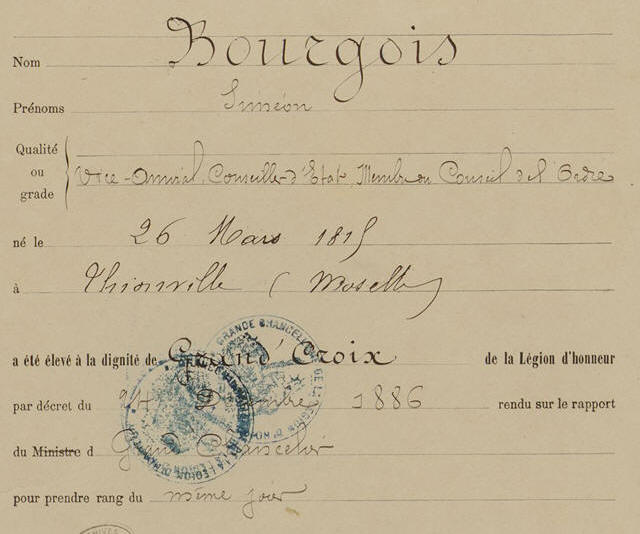 Nom Bourgois
Prénoms Siméon
Qualité ou grade Vice-Amiral, Conseiller-d'Etat, Membre du Conseil de l'Ordre
né le 26 Mars 1815
à Thionville (Moselle)
a été élevé à la dignité de Grand'Croix de la Légion d'honneur
par décret du 24 Décembre 1886 rendu sur le rapport
du Ministre d Grand Chancelier
pour prendre rang du même jour
GRANDE CHANCELLERIE DE LA LÉGION D'HONNEUR